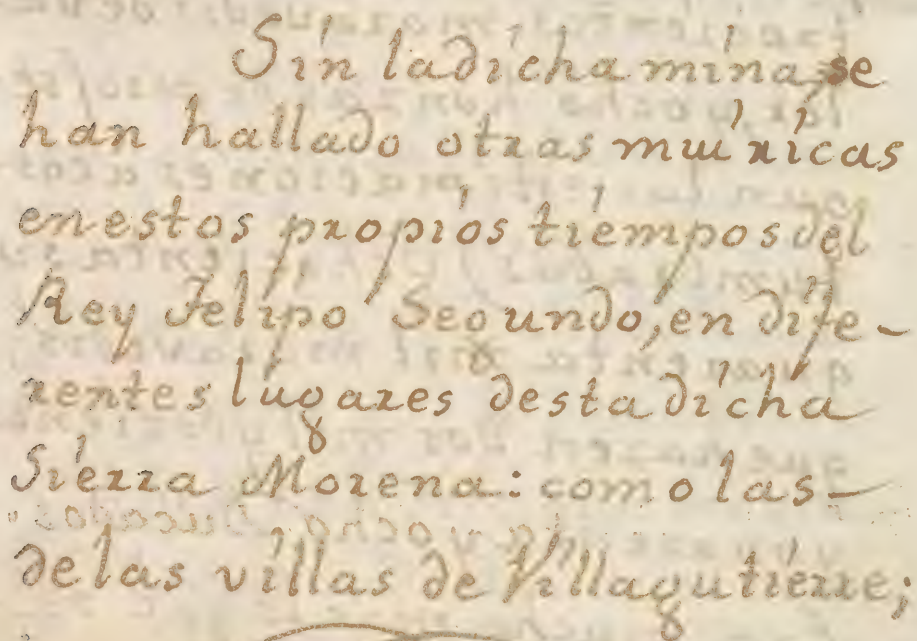 Sin la dicha mina, se
han hallado otras mui ricas
en estos propios tiempos del
Rey Felipo Segundo, en dife-
rentes lugares desta dicha
Sierra Morena: como las
de las villas de Villagutierre;